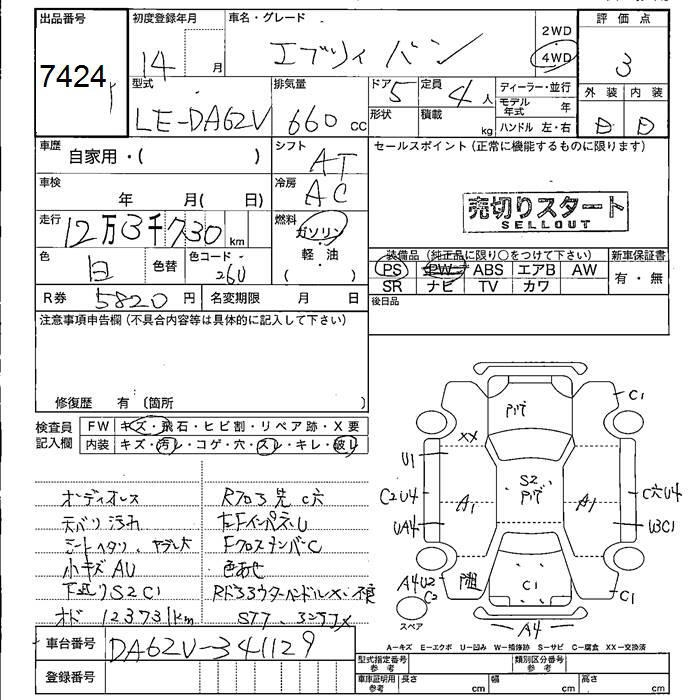 出品番号 初度登録年月 車名・グレード 2WD 評価点
7424 14 月 エブリィ バン 4WD 3
型式 排気量 ドア 5 定員 4 人 ディーラー・並行 外装 内装
LE-DA62V 660 cc 形状 積載 kg モデル年式 年 D D
ハンドル 左・右
車歴 自家用・( ) シフト AT セールスポイント(正常に機能するものに限ります)
車検 年 月( 日) 冷房 AC 売切りスタート
SELLOUT
走行 12万3千730 km 燃料 ガソリン
軽・油
( )
色 白 色替 色コード 26U 装備品(純正品に限り○をつけて下さい) 新車保証書
PS PW ABS エアB AW 有・無
SR ナビ TV カワ
R券 5820 円 名変期限 月 日 後日品
注意事項申告欄(不具合内容等は具体的に記入して下さい)
修復歴 有〔箇所 〕
検査員記入欄 FW キズ・飛石・ヒビ割・リペア跡・X要
内装 キズ・汚レ・コゲ・穴・スレ・キレ・破レ
オーディオレス
天バリ汚れ
シートヘタリ、ヤブレ大
小キズAU
下廻りS2C1
オド 123731km
Rフロア先 C穴
左FインパネU
FクロスメンバーC
色あせ
車台番号 DA62V-341129
登録番号
C1
XX
U1
C2U4
UA4
A1
S2
A1
C穴U4
U3C1
A4U2
C2
C1
C1
A4
スペア
A-キズ E-エクボ U-凹み W-補修跡 S-サビ C-腐食 XX-交換済
型式指定番号 参考 類別区分番号 参考
車庫証明用 参考 長さ cm 幅 cm 高さ cm